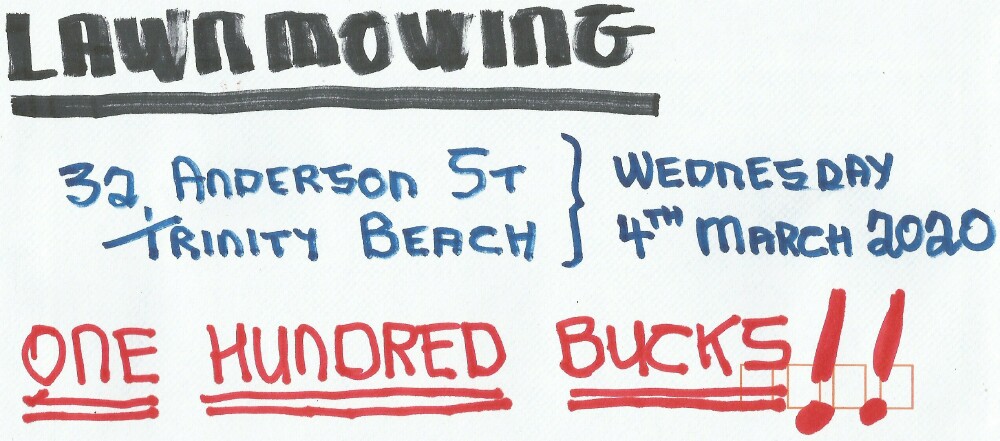 LAWNMOWING
32, ANDERSON ST } WEDNESDAY
TRINITY BEACH } 4TH MARCH 2020
ONE HUNDRED BUCKS!!